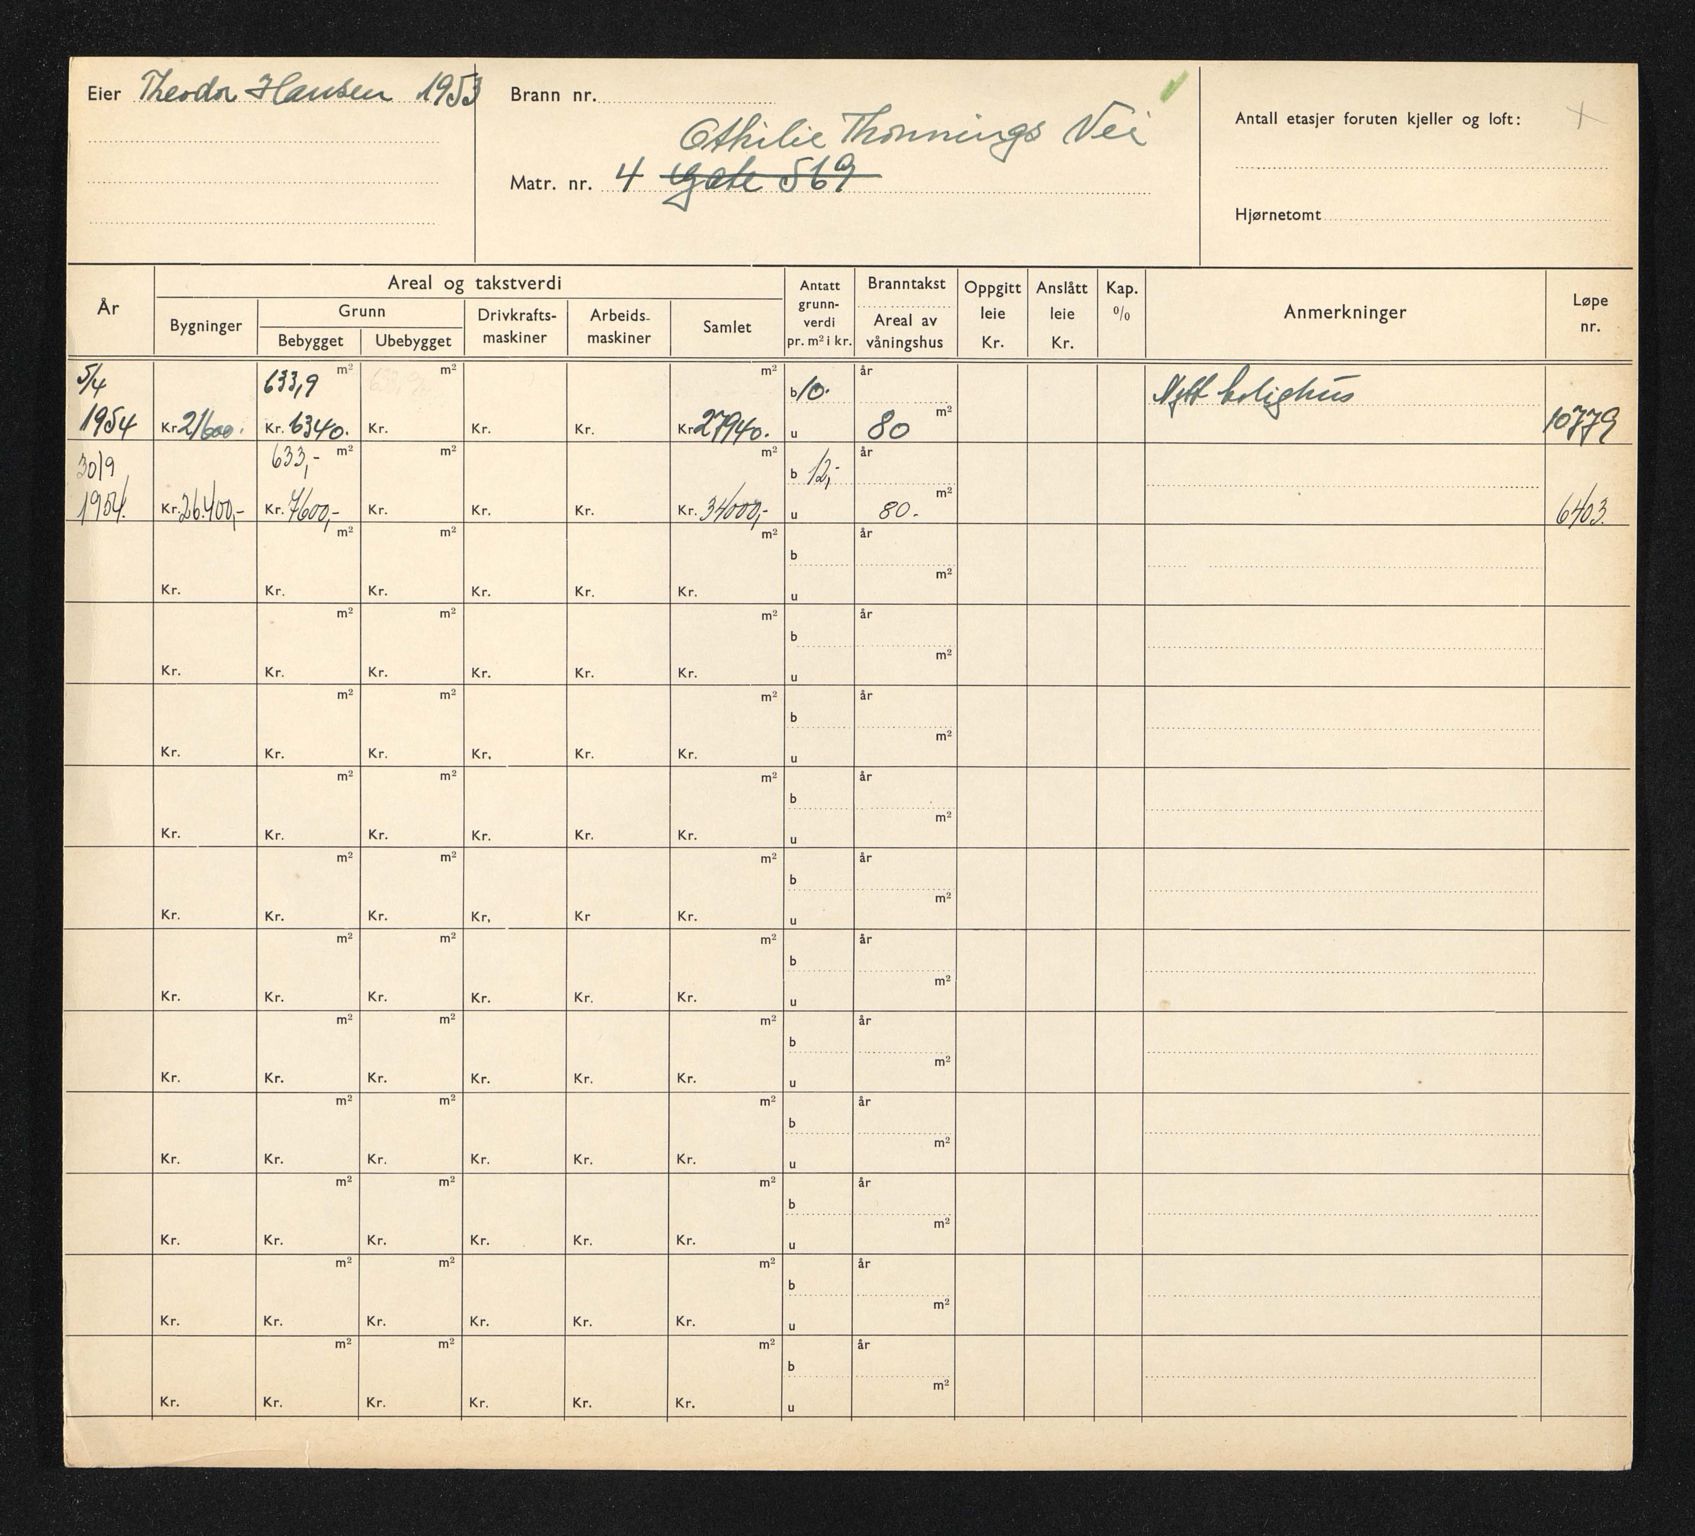 Eier Theodor Hansen 1953
Brann nr.
Othilie Thonnings Vei
Matr. nr. 4 Gate 569
Antall etasjer foruten kjeller og loft:
Hjørnetomt
År
Areal og takstverdi
Bygninger
Grunn
Bebygget
Ubebygget
Drivkrafts-
maskiner
Arbeids-
maskiner
Samlet
Antatt
grunn-
verdi
pr. m² i kr.
Branntakst
Areal av
våningshus
Oppgitt
leie
Kr.
Anslått
leie
Kr.
Kap.
%
Anmerkninger
Løpe
nr.
5/4 633,9 m² 633,9 m² m² b 10. år Nytt bolighus
1954 Kr. 21600. Kr. 6340. Kr. Kr. Kr. Kr. 27940. u 80 m² 10779
30/9 633,- m² m² m² b 12,- år
1954. Kr. 26.400,- Kr. 7600,- Kr. Kr. Kr. Kr. 34000,- u 80. m² 6403.
m² m² m² b år
Kr. Kr. Kr. Kr. Kr. Kr. u m²
m² m² m² b år
Kr. Kr. Kr. Kr. Kr. Kr. u m²
m² m² m² b år
Kr. Kr. Kr. Kr. Kr. Kr. u m²
m² m² m² b år
Kr. Kr. Kr. Kr. Kr. Kr. u m²
m² m² m² b år
Kr. Kr. Kr. Kr. Kr Kr. u m²
m² m² m² b år
Kr. Kr. Kr. Kr. Kr. Kr. u m²
m² m² m² b år
Kr. Kr. Kr. Kr. Kr. Kr. u m²
m² m² m² b år
Kr. Kr. Kr. Kr. Kr. Kr. u m²
m² m² m² b år
Kr. Kr. Kr. Kr. Kr. Kr. u m²
m² m² m² b år
Kr. Kr. Kr. Kr. Kr. Kr. u m²
m² m² m² b år
Kr. Kr. Kr. Kr. Kr. Kr. u m²